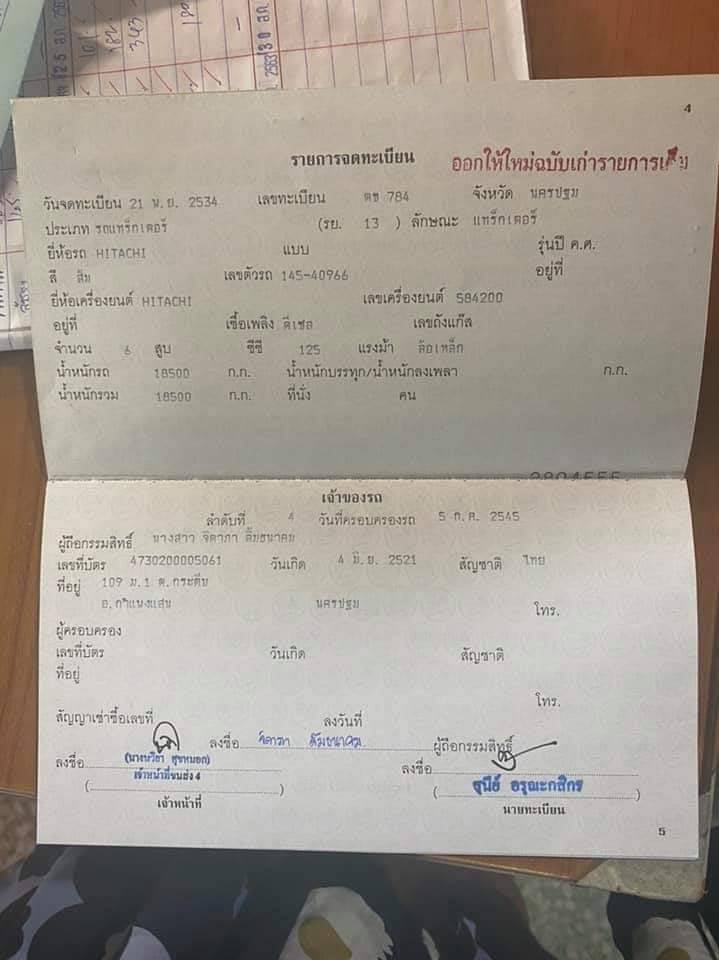 25 ส.ค. 2563
30 ส.ค. 2563
343
4
รายการจดทะเบียน ออกให้ใหม่ฉบับเก่ารายการเต็ม
วันจดทะเบียน 21 พ.ย. 2534 เลขทะเบียน ตข 784 จังหวัด นครปฐม
ประเภท รถแทร็กเตอร์ (รย. 13 ) ลักษณะ แทร็กเตอร์
ยี่ห้อรถ HITACHI แบบ รุ่นปี ค.ศ.
สี ส้ม เลขตัวรถ 145-40966 อยู่ที่
ยี่ห้อเครื่องยนต์ HITACHI เลขเครื่องยนต์ 584200
อยู่ที่ เชื้อเพลิง ดีเซล เลขถังแก๊ส
จำนวน 6 สูบ ซีซี 125 แรงม้า ล้อเหล็ก
น้ำหนักรถ 18500 ก.ก. น้ำหนักบรรทุก/น้ำหนักลงเพลา ก.ก.
น้ำหนักรวม 18500 ก.ก. ที่นั่ง คน
เจ้าของรถ
ลำดับที่ 4 วันที่ครอบครองรถ 5 ก.ค. 2545
ผู้ถือกรรมสิทธิ์ นางสาว จิดาภา ลิ้มธนาคม
เลขที่บัตร 4730200005061 วันเกิด 4 มิ.ย. 2521 สัญชาติ ไทย
ที่อยู่ 109 ม.1 ต.กระตีบ
อ.กำแพงแสน นครปฐม โทร.
ผู้ครอบครอง
เลขที่บัตร วันเกิด สัญชาติ
ที่อยู่
โทร.
สัญญาเช่าซื้อเลขที่ ลงวันที่
ลงชื่อ จิดาภา ลิ้มธนาคม ผู้ถือกรรมสิทธิ์
ลงชื่อ (นางนวียา สุขหมอก) ลงชื่อ
เจ้าหน้าที่ขนส่ง 4 ( สุนีย์ อรุณะกสิกร )
เจ้าหน้าที่ นายทะเบียน
5